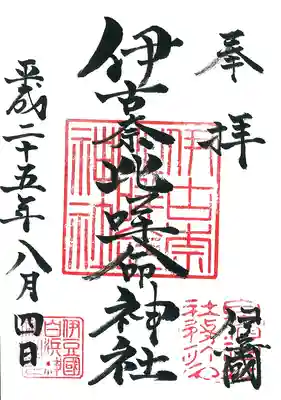 奉拝
伊豆國
伊古奈比咩命神社
平成二十五年八月四日
伊古奈
比咩命
神社
伊豆國
白浜神